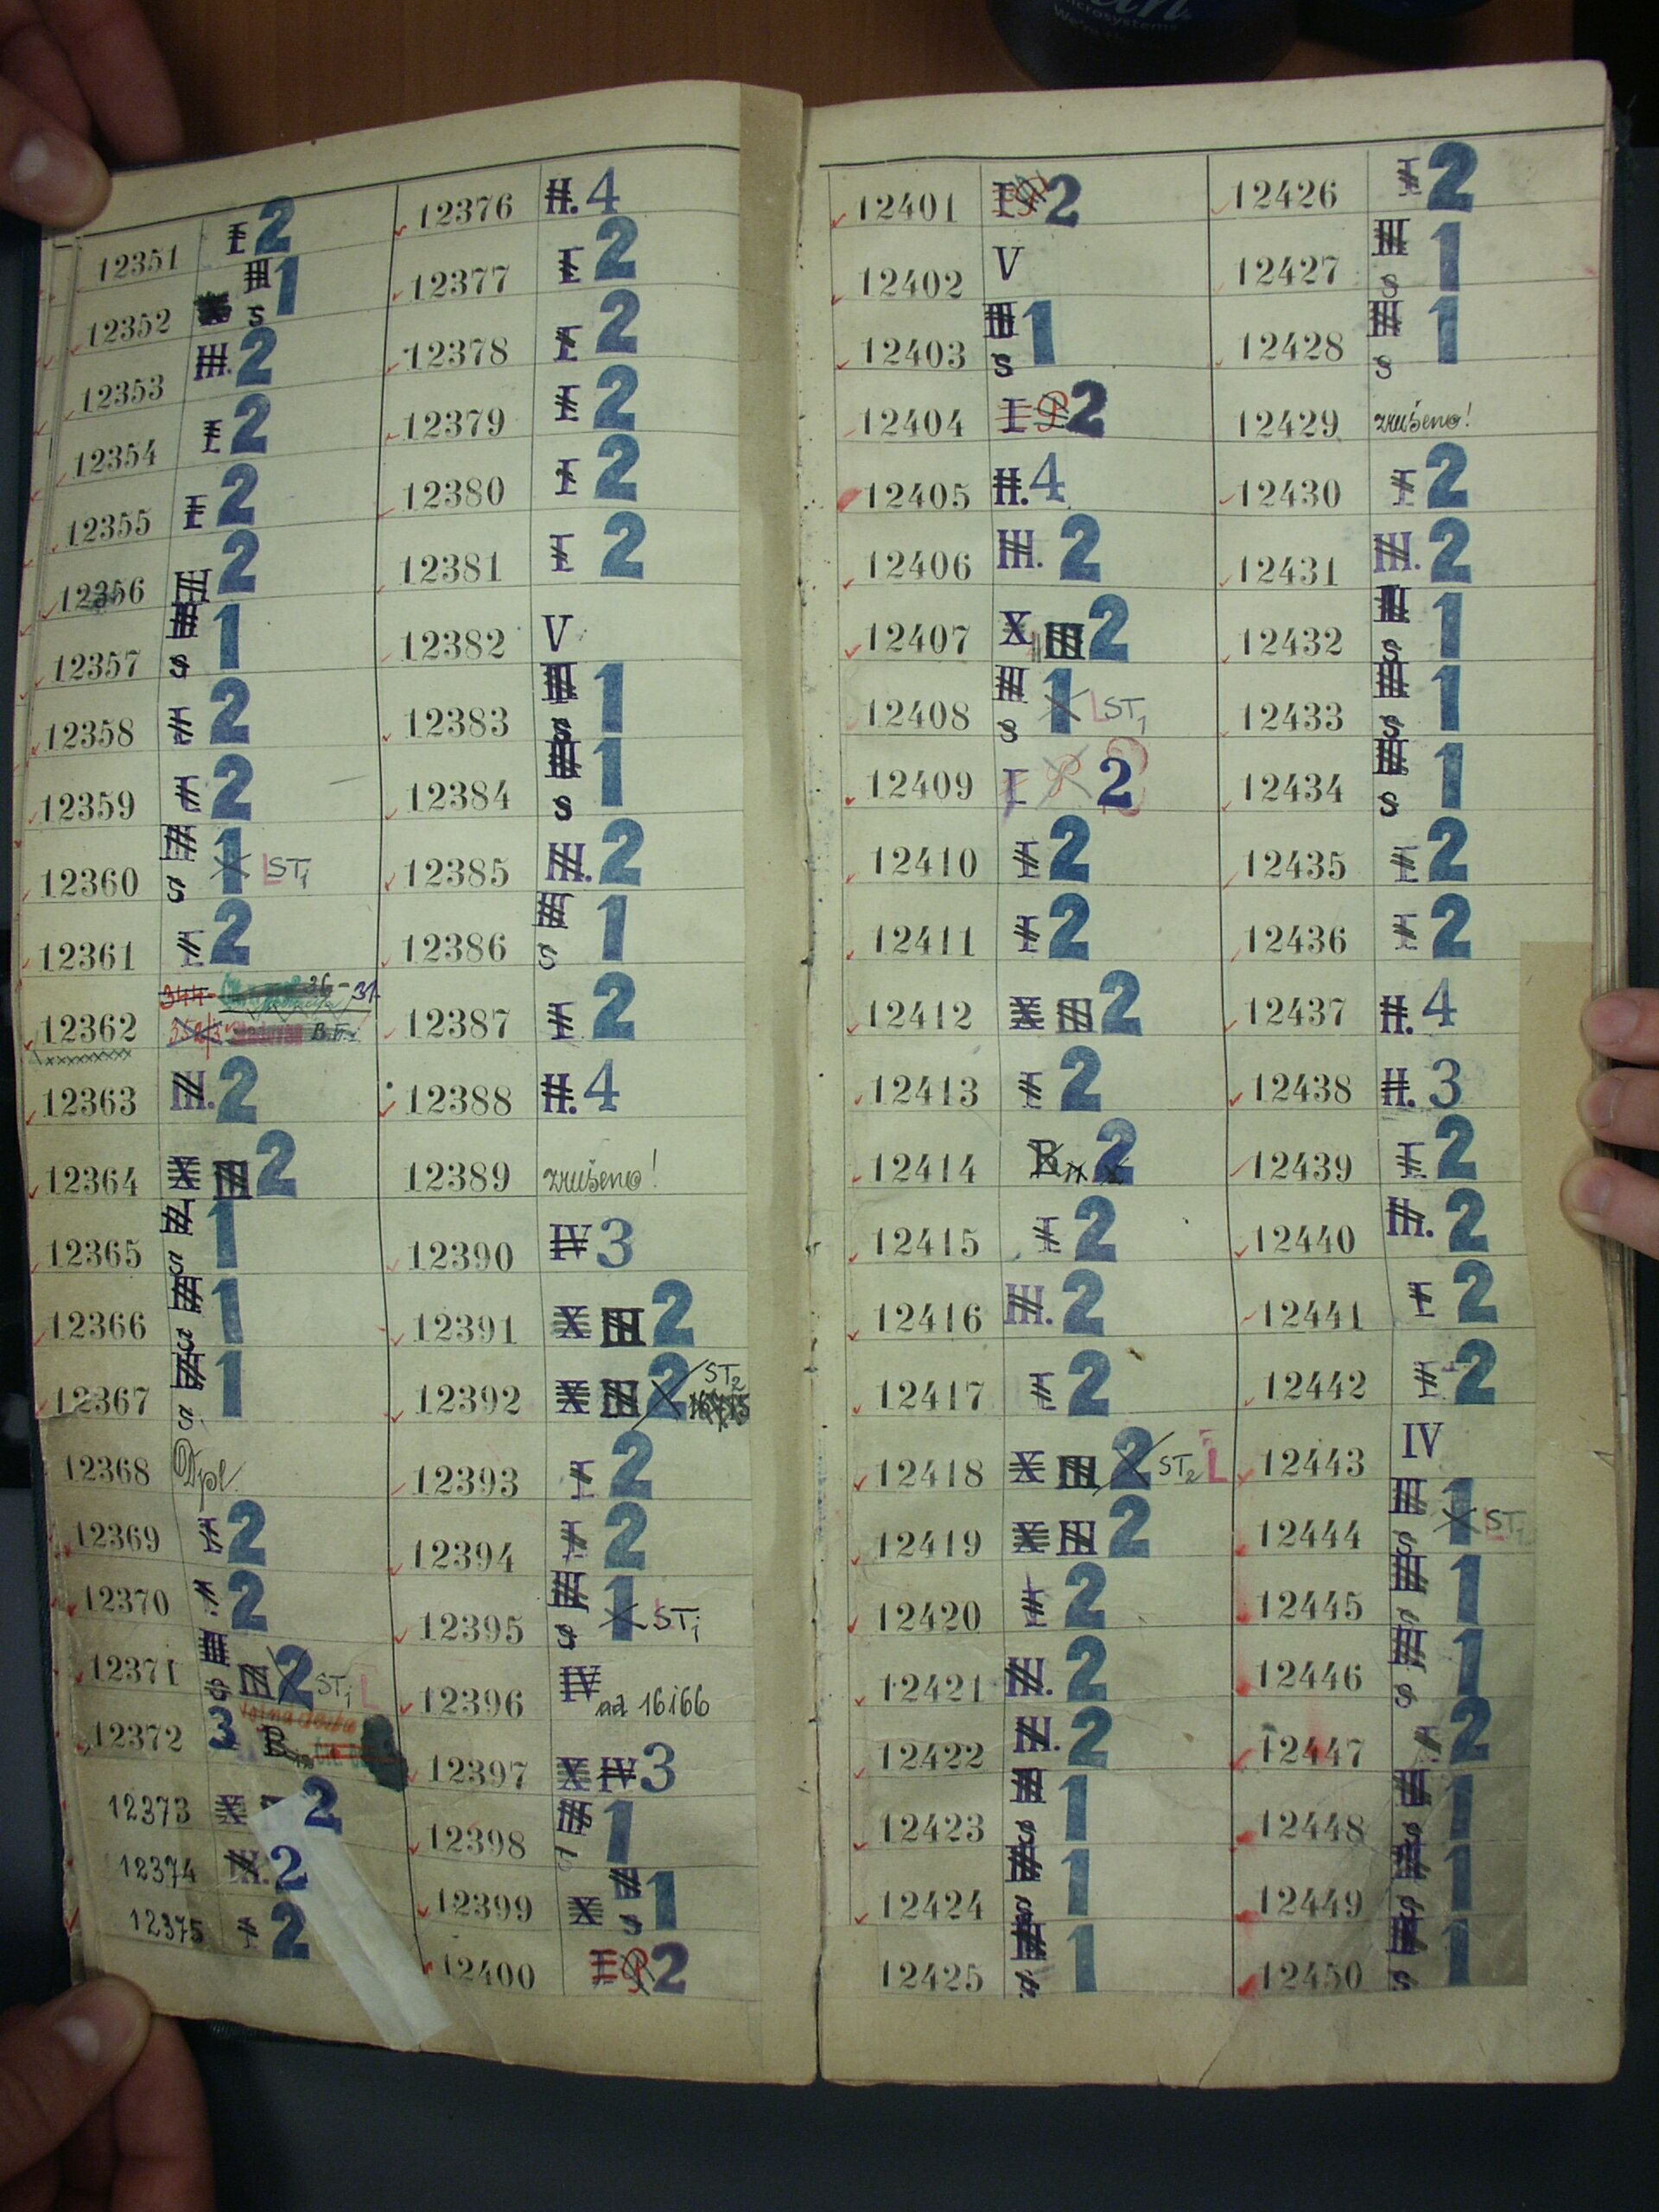 microsystems
12351 I 2
12352 III s 1
12353 III. 2
12354 I 2
12355 I 2
12356 III 2
12357 III s 1
12358 I 2
12359 I 2
12360 III s 1 L ST1
12361 I 2
12362 344-
12363 III. 2
12364 X III 2
12365 III s 1
12366 III s 1
12367 III s 1
12368
12369 I 2
12370 I 2
12371 III s III 2 ST1 L
12372 3 B
12373 X 2
12374 III. 2
12375 I 2
12376 H. 4
12377 I 2
12378 I 2
12379 I 2
12380 I 2
12381 I 2
12382 V
12383 III s 1
12384 III s 1
12385 III. 2
12386 III s 1
12387 I 2
12388 H. 4
12389 zrušeno!
12390 IV 3
12391 X III 2
12392 X III 2 ST2
12393 I 2
12394 I 2
12395 III s 1 ST1
12396 IV na 16166
12397 X IV 3
12398 III s 1
12399 X III s 1
12400 I P 2
12401 I P 2
12402 V
12403 III s 1
12404 I P 2
12405 H. 4
12406 III. 2
12407 X III 2
12408 III s 1 L ST1
12409 I P 2
12410 I 2
12411 I 2
12412 X III 2
12413 I 2
12414 B 2
12415 I 2
12416 III. 2
12417 I 2
12418 X III 2 ST2 L
12419 X III 2
12420 I 2
12421 III. 2
12422 III. 2
12423 III s 1
12424 III s 1
12425 III s 1
12426 I 2
12427 III s 1
12428 III s 1
12429 zrušeno!
12430 I 2
12431 III. 2
12432 III s 1
12433 III s 1
12434 III s 1
12435 I 2
12436 I 2
12437 H. 4
12438 H. 3
12439 I 2
12440 III. 2
12441 I 2
12442 I 2
12443 IV
12444 III s 1 L ST1
12445 III s 1
12446 III s 1
12447 I 2
12448 III s 1
12449 III s 1
12450 III s 1